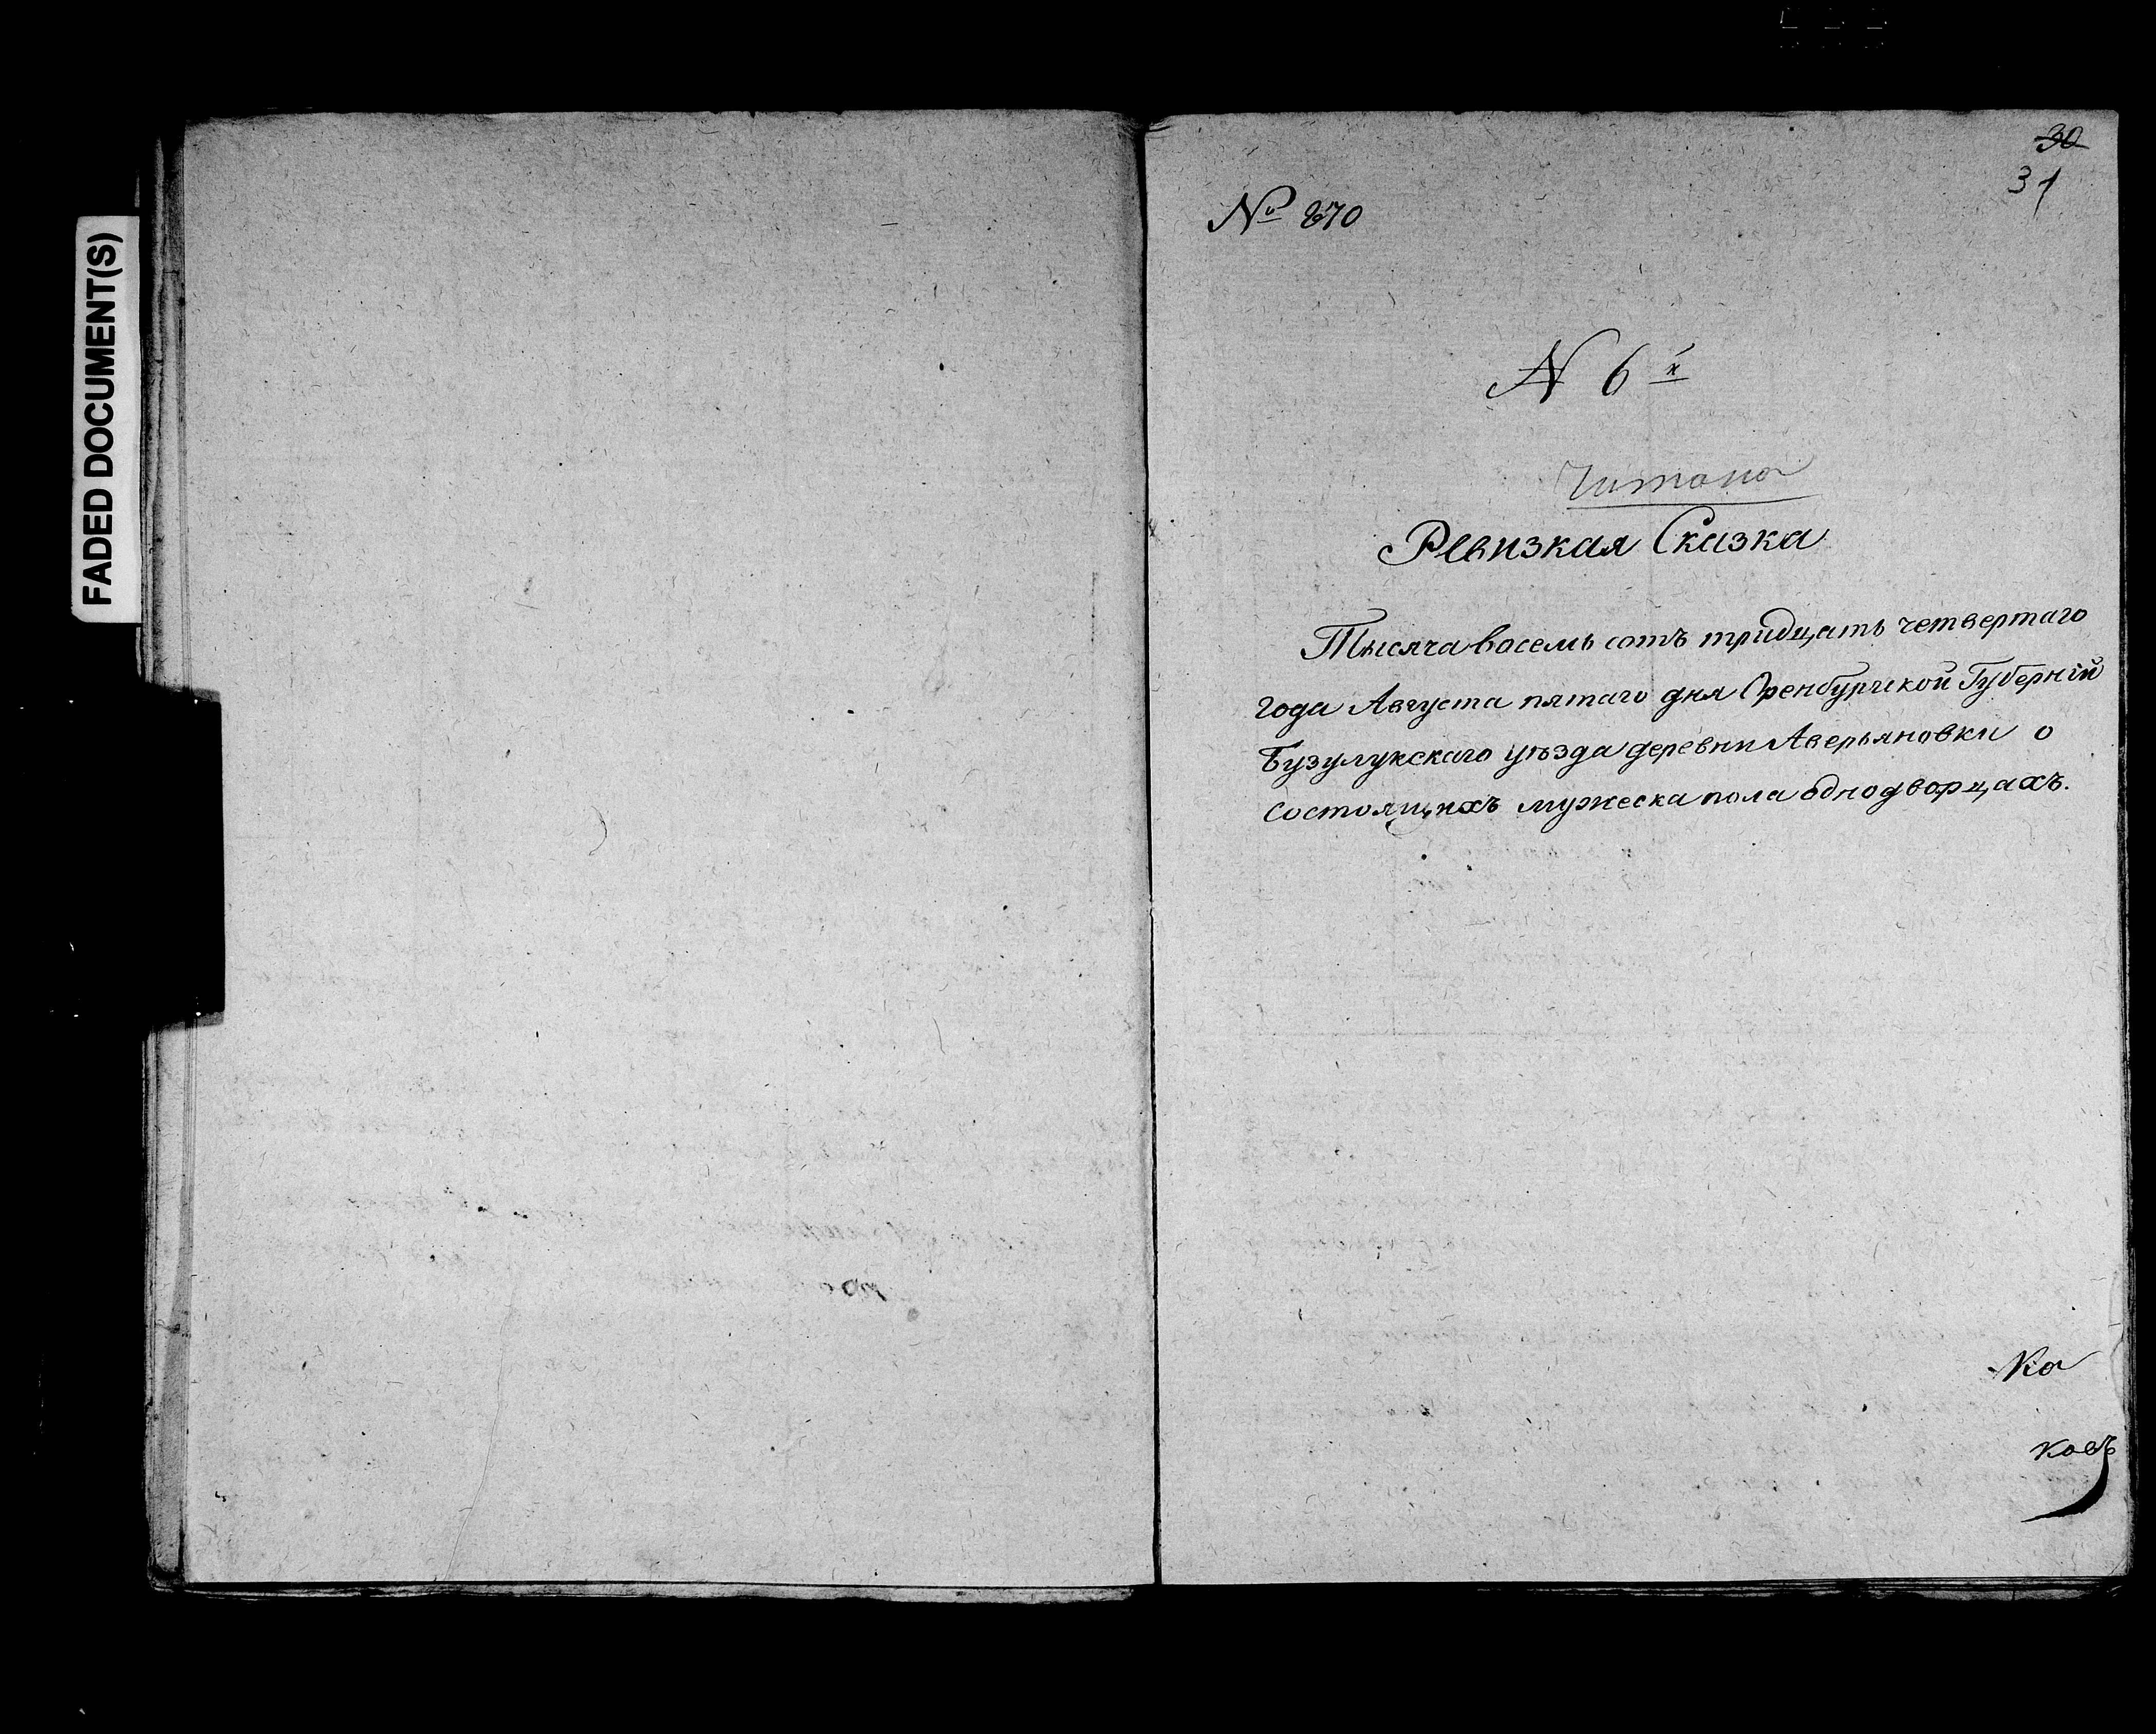 FADED DOCUMENT(S)
30
31
№ 870
N 6й
Читано
Ревизкая Сказка
Тысяча восемь сотъ тридцать четвертаго
года Августа пятаго дня Оренбургской Губерній
Бузулукскаго уѣзда деревни Аверьяновки о
состоящихъ мужеска пола однодворцахъ.
Ко
ковъ